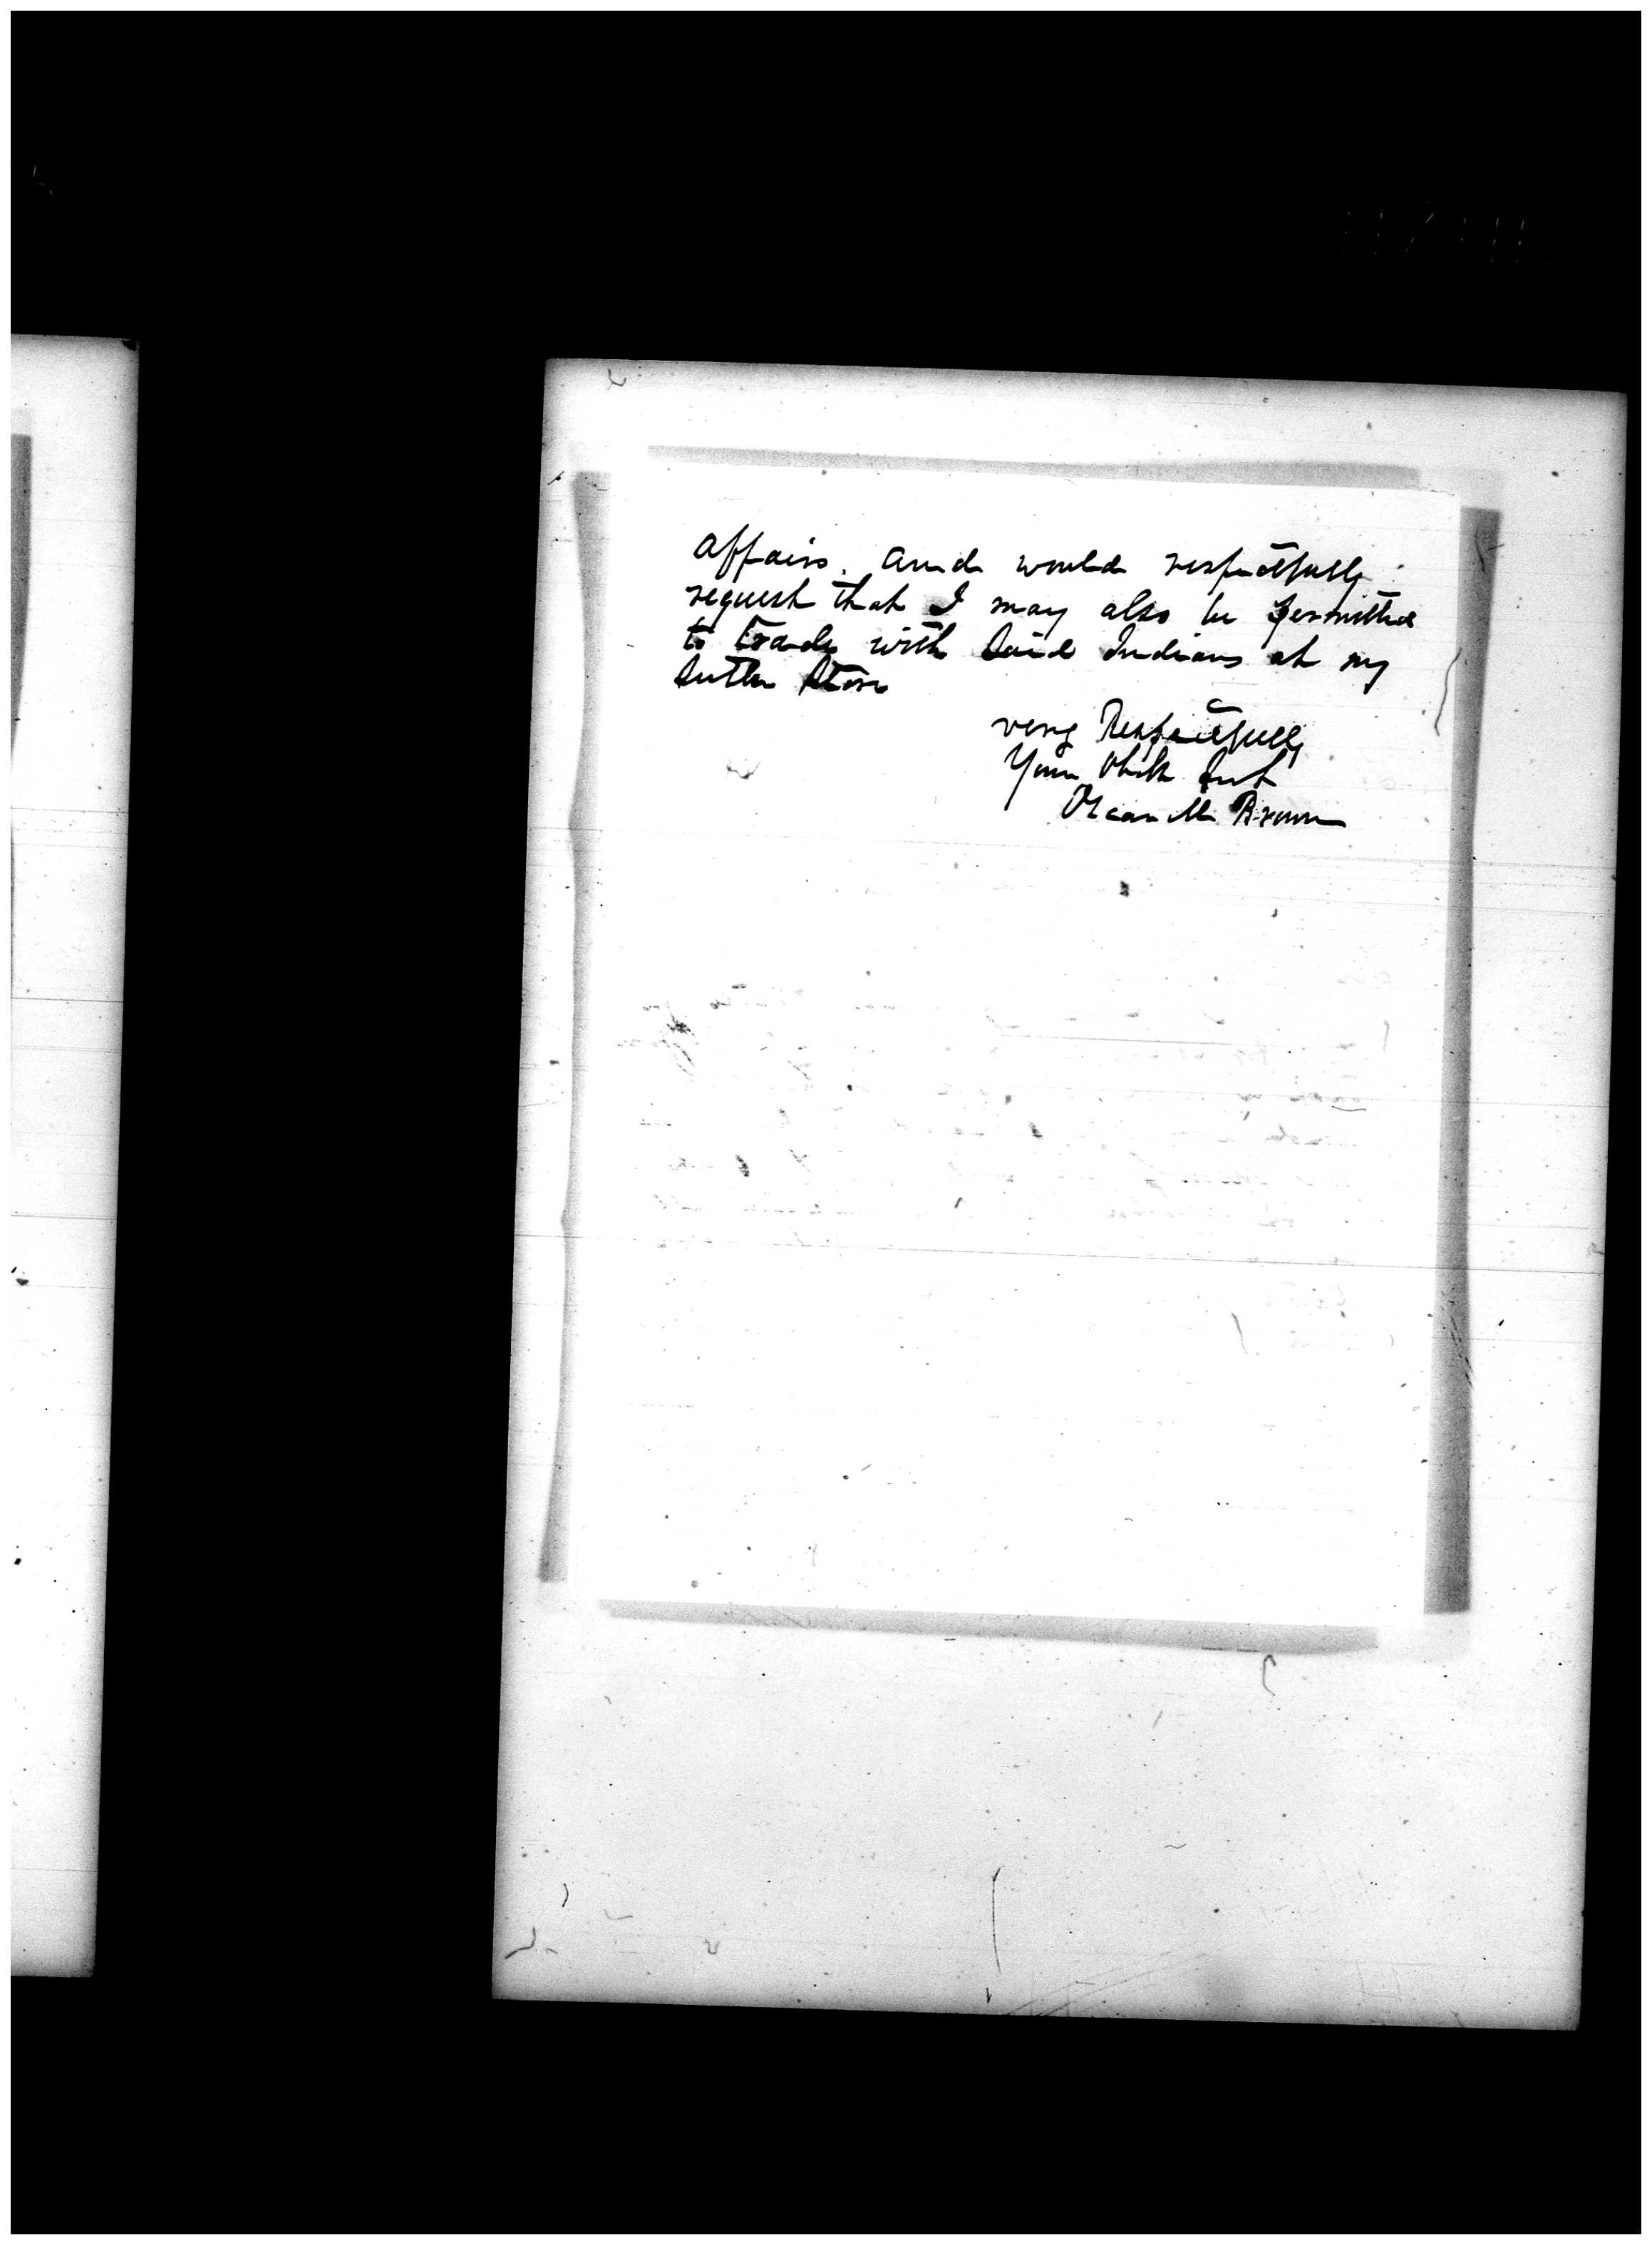 affairs. and would respectfully
request that I may also be permitted
to trade with said Indians at my
Sutler Store
very Respectfully
Your Obdt Svt
Oscar M Brown